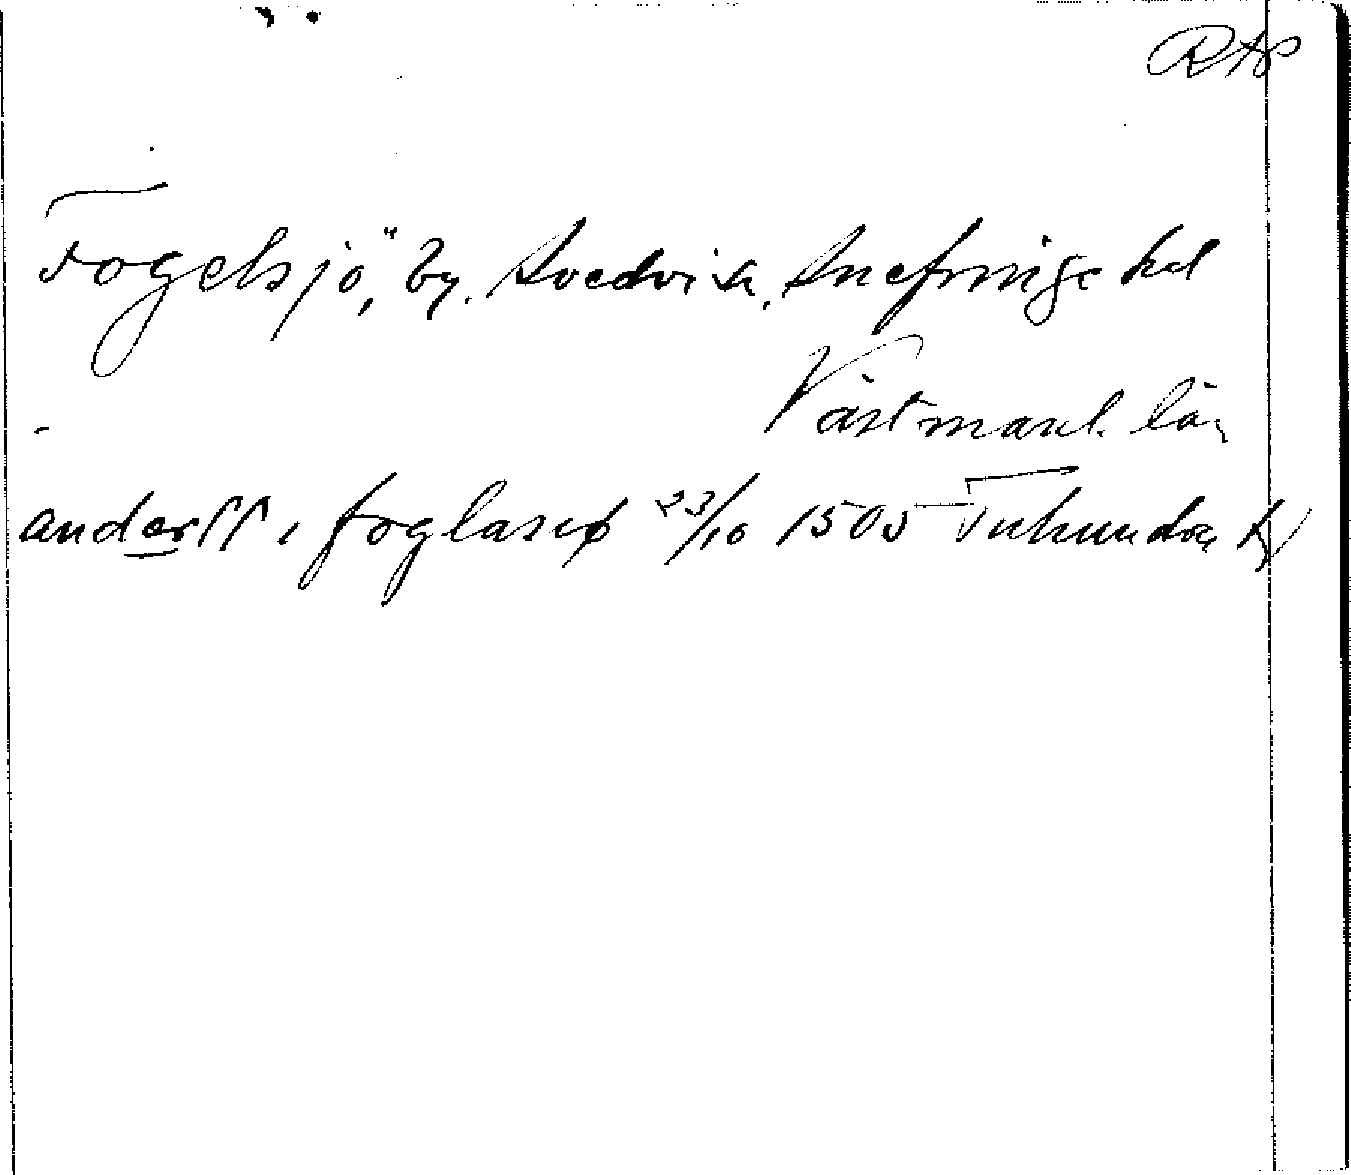 RAP
Fogelsjö, by. Svedvik, Snefringe hd
Västmanl. län
anderss i foglasiø 23/10 1505